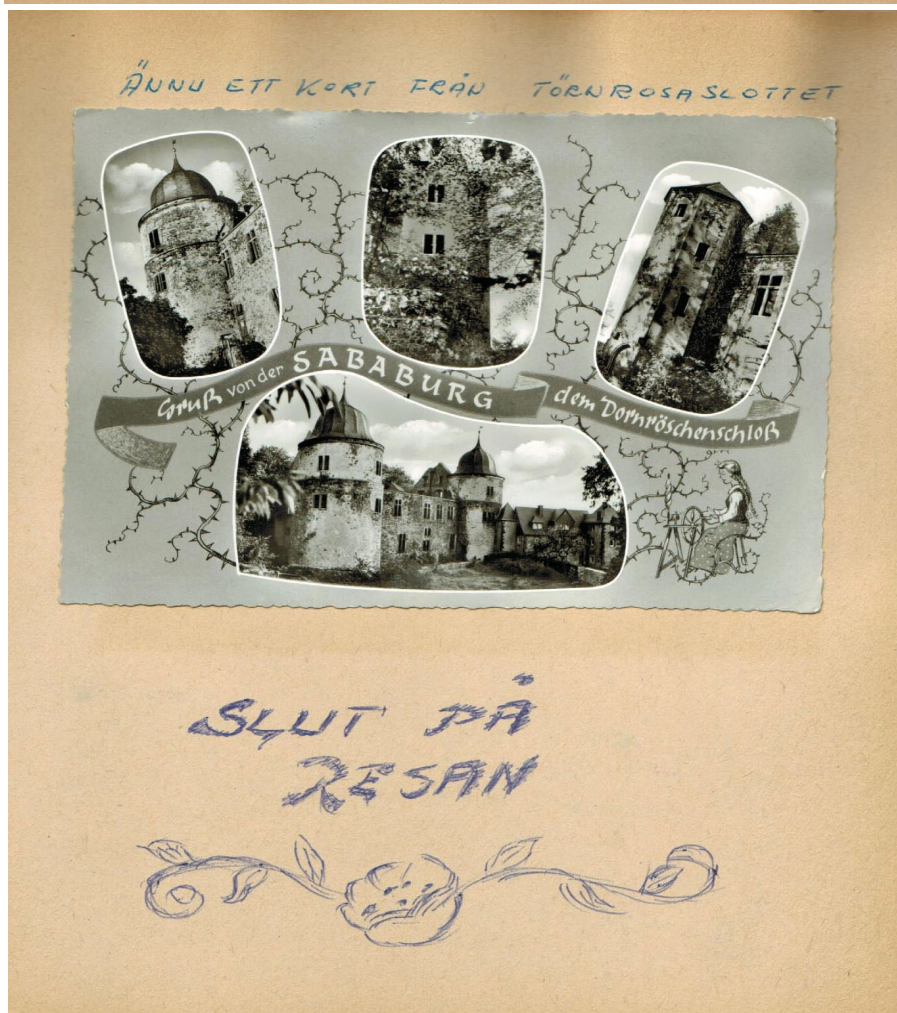 ÄNNU ETT KORT FRÅN TÖRNROSASLOTTET
Gruß von der SABABURG dem Dornröschenschloß
SLUT PÅ
RESAN